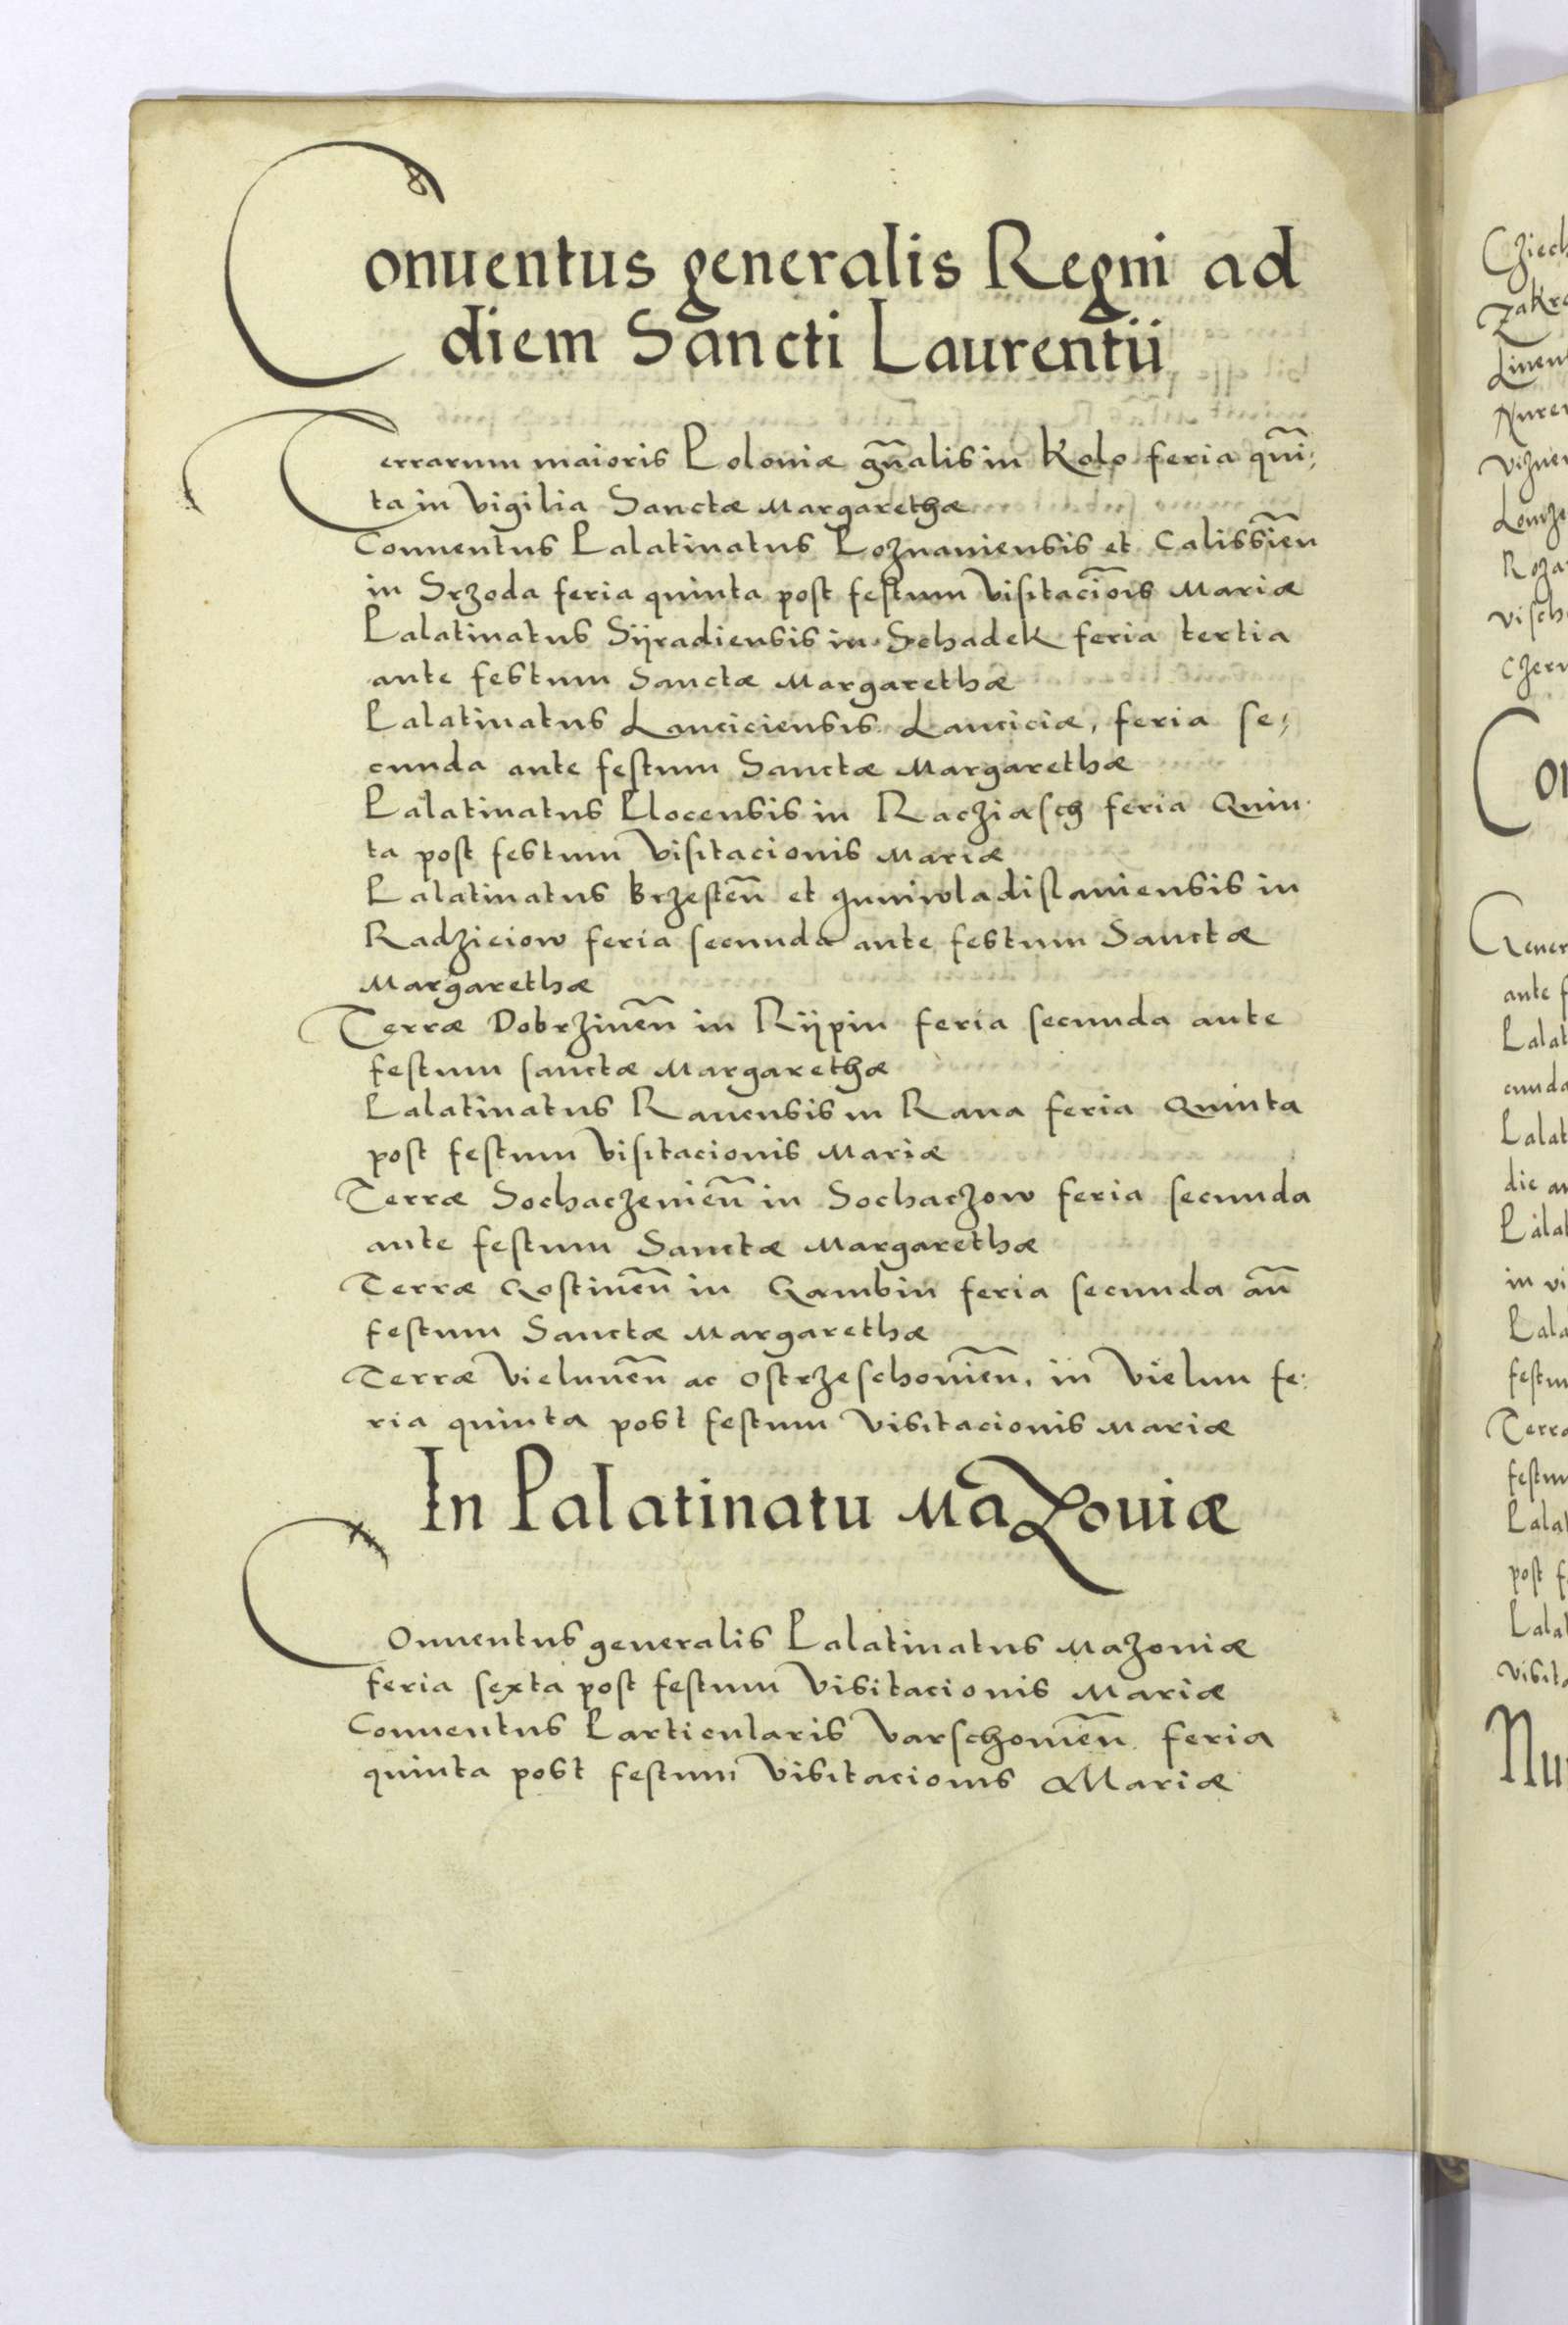 Conuentus generalis Regni ad
diem Sancti Laurentii
Terrarum maioris Poloniæ gn̄alis in Kolo feria qui̅n;
ta in vigilia Sanctæ Margarethæ
Conuentus Palatinatus Poznaniensis et Calissien̄
in Srzoda feria quinta post festum Visitacio̅is Mariæ
Palatinatus Sÿradiensis in Schadek feria tertia
ante festum Sanctæ Margarethæ
Palatinatus Lanciciensis Lanciciæ, feria se;
cunda ante festum Sanctæ Margarethæ
Palatinatus Plocensis in Racziasch feria Quin
ta post festum Visitacionis Mariæ
Palatinatus Brzesten̄ et Juniwladislauiensis in
Radzieiow feria secunda ante festum Sanctæ
Margarethæ
Terræ Dobrzinen̄ in Rÿpin feria secunda ante
festum sanctæ Margarethæ
Palatinatus Rauensis in Raua feria Quinta
post festum Visitacionis Mariæ
Terræ Sochaczeuien̄ in Sochaczow feria secunda
ante festum Sanctæ Margarethæ
Terræ Gostinen̄ in Gambin feria secunda an̄
festum Sanctæ Margarethæ
Terræ Vielunen̄ ac Ostrzeschouien̄, in Vielun fe:
ria quinta post festum Visitacionis Mariæ
In Palatinatu Mazouiæ
Conuentus generalis Palatinatus Mazouiæ
feria sexta post festum Visitacionis Mariæ
Conuentus Particularis Varschouien̄ feria
quinta post festum Visitacionis Mariæ